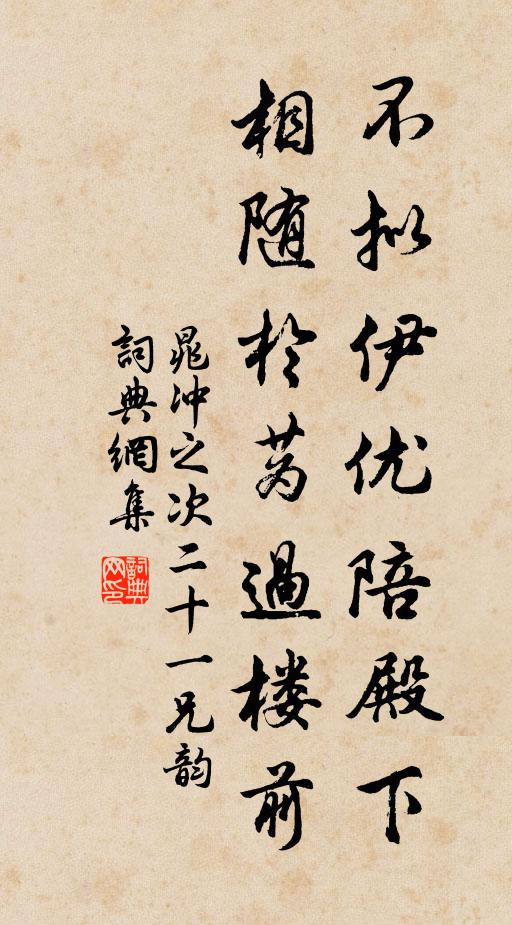 不拟伊优陪殿下
相随於𫇭過楼前
晁冲之次二十一兄韵
詞典網集
詞典网印